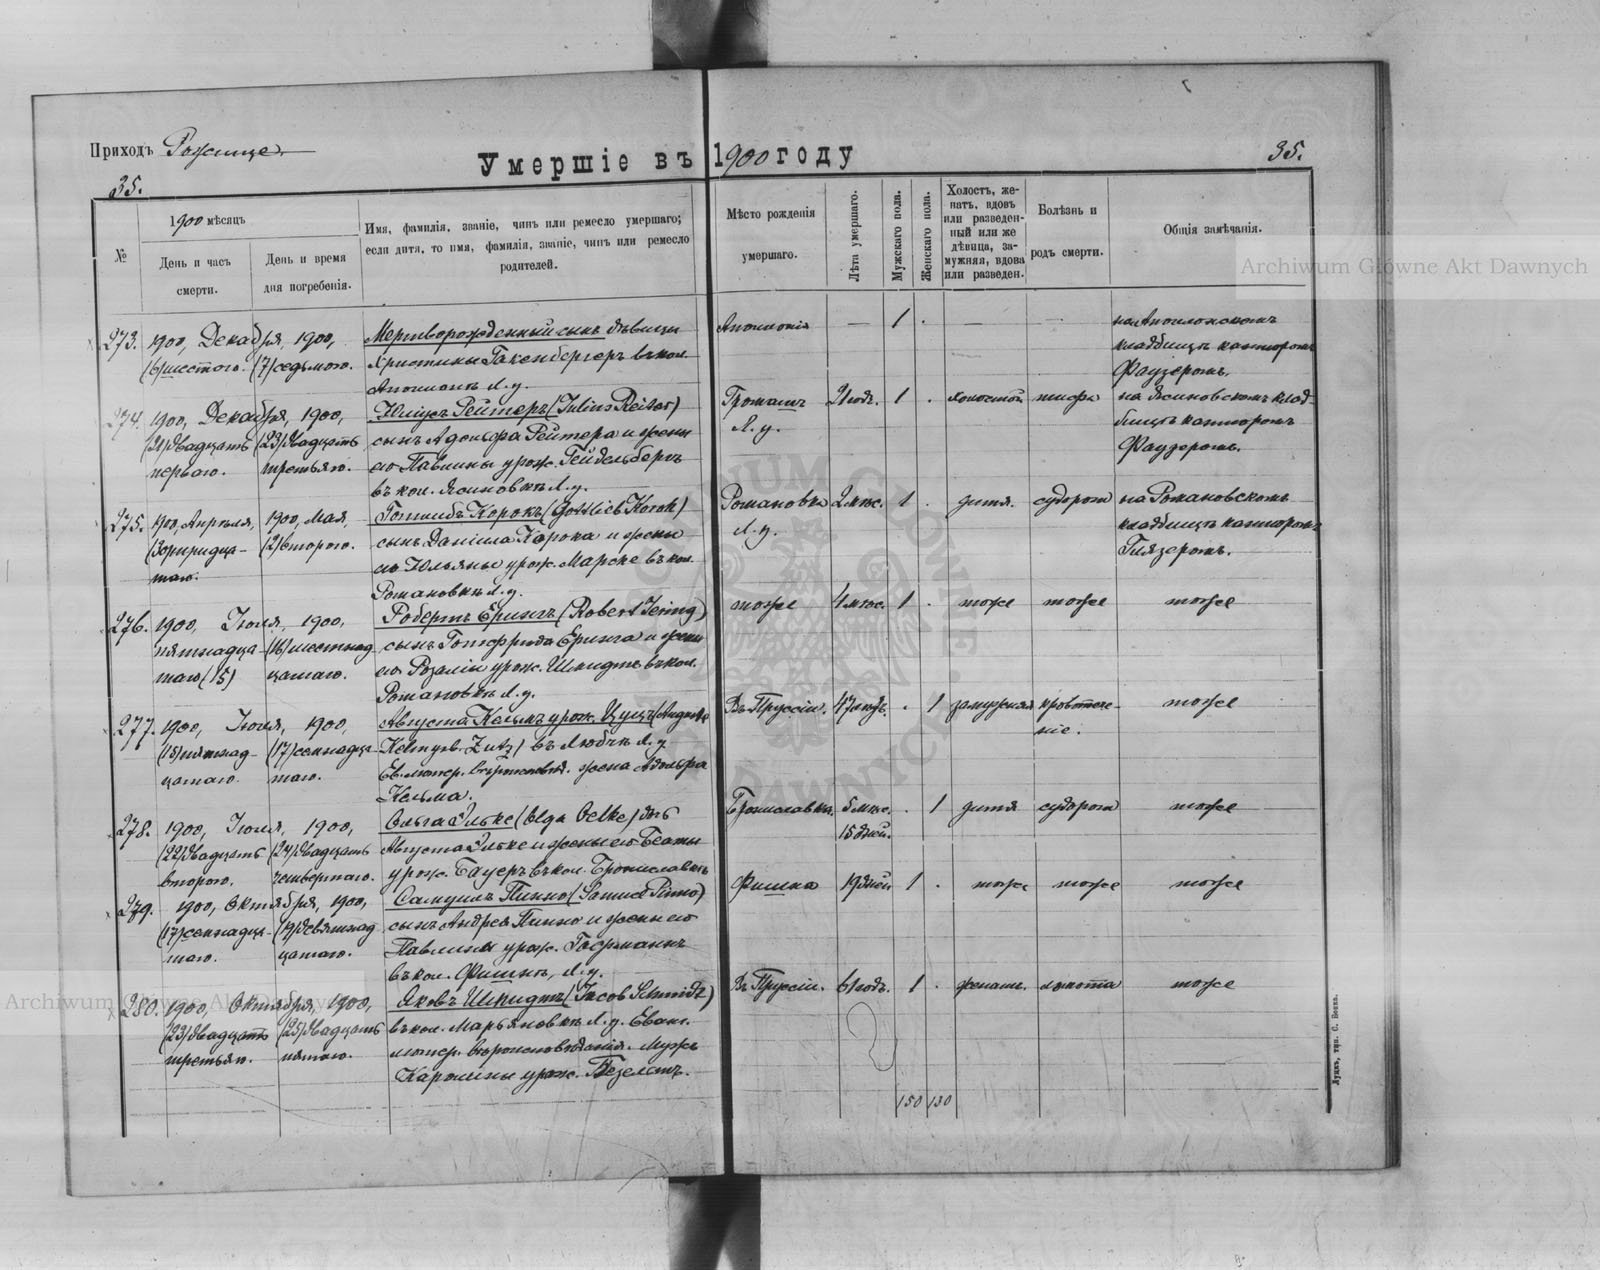 Приходъ Рожище.
35.
Умершіе въ 1900 году
35.
№
1900 мѣсяцъ
День и часъ смерти.
День и время дня погребенія.
Имя, фамилія, званіе, чинъ или ремесло умершаго;
если дитя, то имя, фамилія, званіе, чинъ или ремесло
родителей.
Мѣсто рожденія
умершаго.
Лѣта умершаго.
Мужскаго пола.
Женскаго пола.
Холостъ, же-
натъ, вдовъ
или разведен-
ный или же
дѣвица, за-
мужняя, вдова
или разведен.
Болѣзнь и
родъ смерти.
Общія замѣчанія.
273.
1900, Декабря, 1900,
(6) шестого.
(7) седьмого.
Мертворожденный сынъ дѣвицы
Христины въ кол.
Л. у.
—
1
.
—
—
кладбищѣ канторомъ
Фаузеромъ.
274.
1900, Декабря, 1900,
(21) двадцать
первого.
(23) двадцать
третьяго.
Юліусъ Рейтеръ (Julius Reiter)
сынъ Адольфа Рейтера и жены
его Павлины урож. Гейдельбергъ
въ кол. Ясиновкѣ Л. у.
Л. у.
21 годъ.
1
.
холостой
тифъ
на Ясиновскомъ клад-
бищѣ канторомъ
Фаузеромъ.
275.
1900, Апрѣля,
(30) тридца-
таго.
1900, Мая,
(2) второго.
Готлибъ Корокъ (Gottlieb Korok)
сынъ Даніила Корока и жены
его Юльяны урож. Марске въ кол.
Романовкѣ Л. у.
Романовка
Л. у.
2 мѣс.
1
.
дитя.
судорога
на Романовскомъ
кладбищѣ канторомъ
Глязеромъ.
276.
1900, Іюля, 1900,
пятнадца-
таго (15)
(16) шестнад
цатаго.
Робертъ Ерингъ (Robert Jering)
сынъ Готфрида Еринга и жены
его Розаліи урож. Шмидтъ въ кол.
Романовкѣ Л. у.
тоже
4 мѣс.
1
.
тоже
тоже
тоже
277.
1900, Іюля, 1900,
(15) пятнад-
цатаго.
(17) семнадца-
таго.
Августа Кельмъ урож. Цуцъ (Auguste
Kelm geb. Zutz) въ Любчѣ Л. у.
Ев. лютер. вѣроисповѣд. жена Адольфа
Кельма.
Въ Пруссіи.
47 лѣтъ.
.
1
замужняя
кровотече-
ніе.
тоже
278.
1900, Іюля, 1900,
(22) двадцать
второго.
(24) двадцать
четвертаго.
Ольга Эльке (Olga Oelke) дочь
Августа Элькe и жены его Беаты
урож. Бауеръ въ кол. Брониславкѣ
Брониславка.
5 мѣс.
15 дней.
.
1
дитя
судорога
тоже
279.
1900, Октября, 1900,
(17) семнадца-
таго.
(19) девятнад
цатаго.
Самуилъ Пинно (Samuel Pinno)
сынъ Андрея Пинно и жены его
Павлины урож. Гофманъ
въ кол. Л. у.
19 дней
1
.
тоже
тоже
тоже
280.
1900, Октября, 1900,
(23) двадцать
третьяго.
(25) двадцать
пятаго.
Яковъ Шмидтъ (Jacob Schmidt)
въ кол. Марьяновкѣ Л. у. Еванг.
лютер. вѣроисповѣданія. Мужъ
Каролины урож. Везелатъ.
Въ Пруссіи.
61 годъ.
1
.
женат.
тоже
150 130
Луцкъ, тип. С. Бонка.
Archiwum Główne Akt Dawnych
Archiwum Główne Akt Dawnych